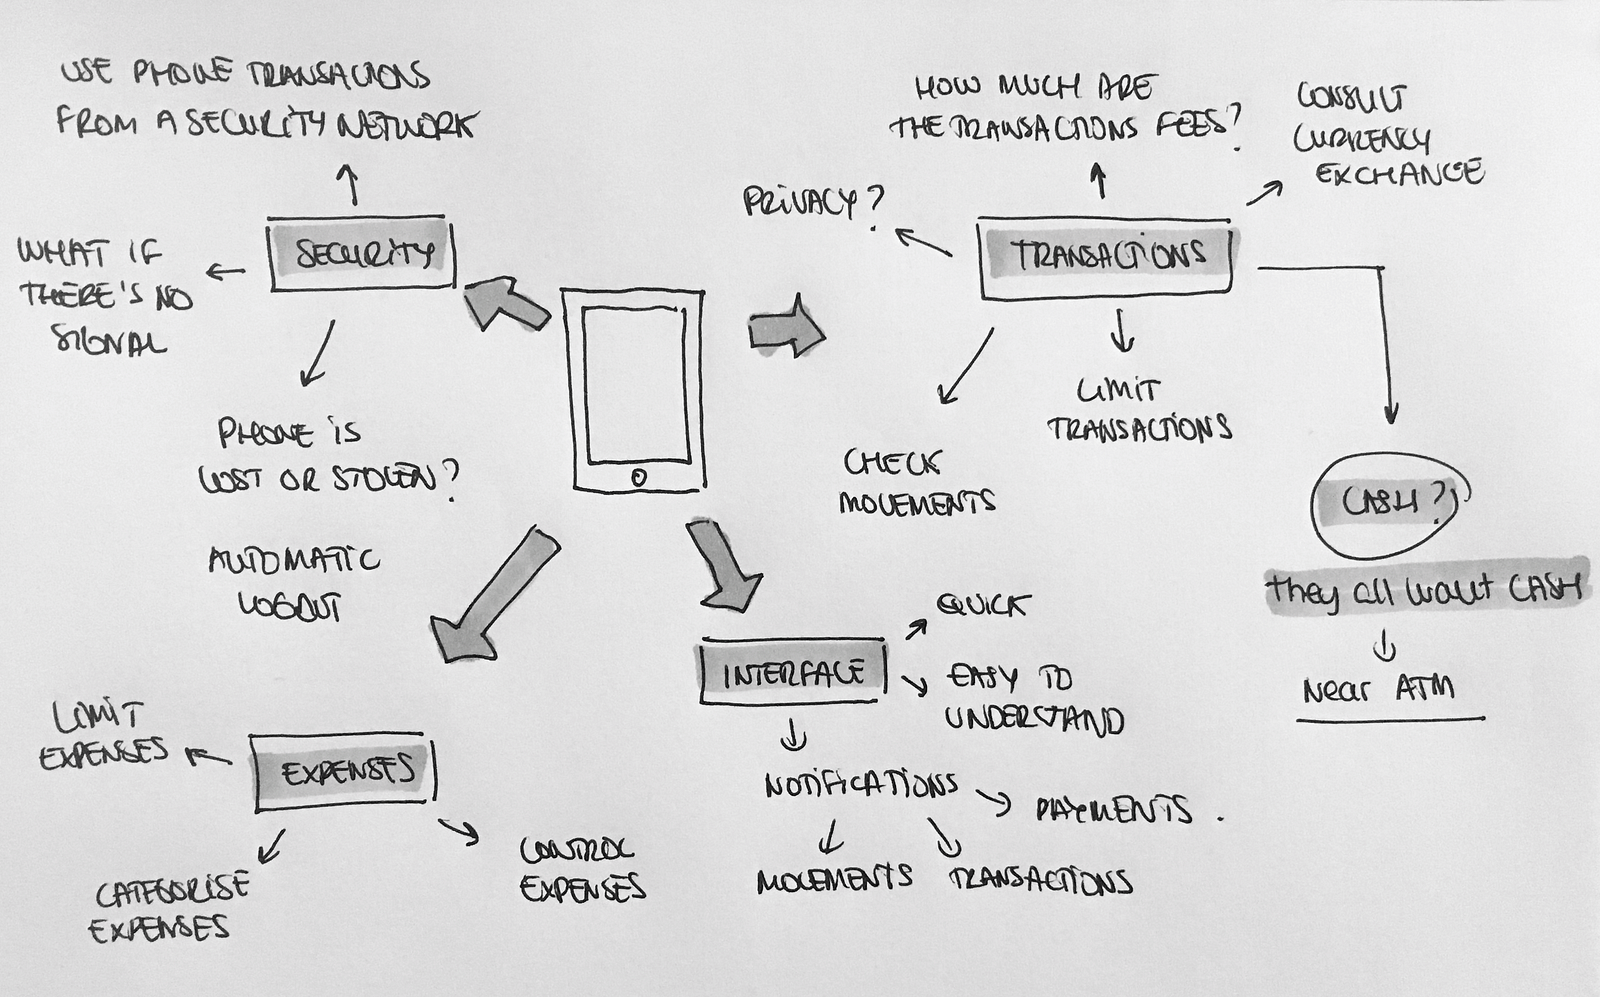 USE PHONE TRANSACTIONS
FROM A SECURITY NETWORK
SECURITY
WHAT IF
THERE'S NO
SIGNAL
PHONE IS
LOST OR STOLEN?
AUTOMATIC
LOGOUT
HOW MUCH ARE
THE TRANSACTIONS FEES?
CONSULT
CURRENCY
EXCHANGE
PRIVACY?
TRANSACTIONS
LIMIT
TRANSACTIONS
CHECK
MOVEMENTS
CASH?
they all want CASH
Near ATM
INTERFACE
QUICK
EASY TO
UNDERSTAND
NOTIFICATIONS
PAYMENTS.
MOVEMENTS
TRANSACTIONS
EXPENSES
LIMIT
EXPENSES
CATEGORISE
EXPENSES
CONTROL
EXPENSES